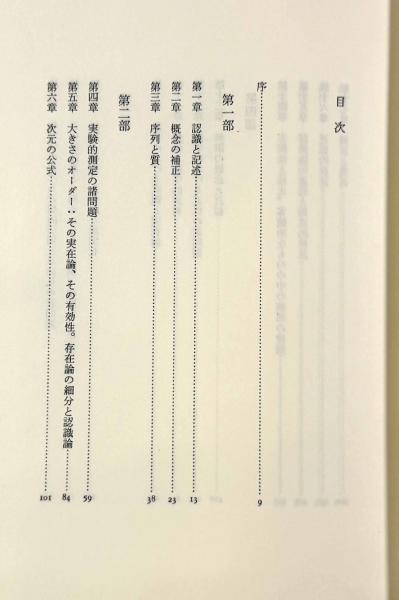 目次
序……9
第一部
第一章 認識と記述……13
第二章 概念の補正……23
第三章 序列と質……38
第二部
第四章 実験的測定の諸問題……59
第五章 大きさのオーダー：その実在論、その有効性。存在論の細分と認識論……84
第六章 次元の公式……101